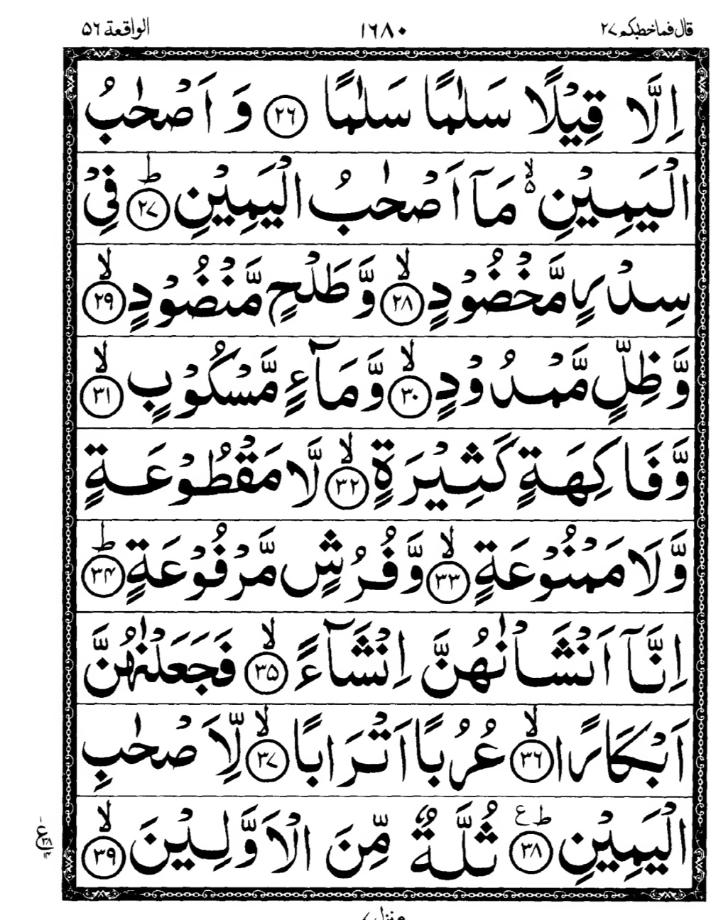 قال فما خطبكم ٢٧ ١٦٨٠ الواقعة ٥٦
اِلَّا قِيْلًا سَلٰمًا سَلٰمًا ﴿۲۶﴾ وَ اَصْحٰبُ
الْيَمِيْنِ ۙ۬ مَاۤ اَصْحٰبُ الْيَمِيْنِ ﴿ؕ۲۷﴾ فِيْ
سِدْرٍ مَّخْضُوْدٍ ﴿ۙ۲۸﴾ وَّ طَلْحٍ مَّنْضُوْدٍ ﴿ۙ۲۹﴾
وَّ ظِلٍّ مَّمْدُوْدٍ ﴿ۙ۳۰﴾ وَّ مَآءٍ مَّسْكُوْبٍ ﴿ۙ۳۱﴾
وَّ فَاكِهَةٍ كَثِيْرَةٍ ﴿ۙ۳۲﴾ لَّا مَقْطُوْعَةٍ
وَّ لَا مَمْنُوْعَةٍ ﴿ۙ۳۳﴾ وَّ فُرُشٍ مَّرْفُوْعَةٍ ﴿ؕ۳۴﴾
اِنَّاۤ اَنْشَاْنٰهُنَّ اِنْشَآءً ﴿ۙ۳۵﴾ فَجَعَلْنٰهُنَّ
اَبْكَارًا ﴿ۙ۳۶﴾ عُرُبًا اَتْرَابًا ﴿ۙ۳۷﴾ لِّاَصْحٰبِ
الْيَمِيْنِ ﴿ؕ۳۸﴾ ع ثُلَّةٌ مِّنَ الْاَوَّلِيْنَ ﴿ۙ۳۹﴾
منزل ٧